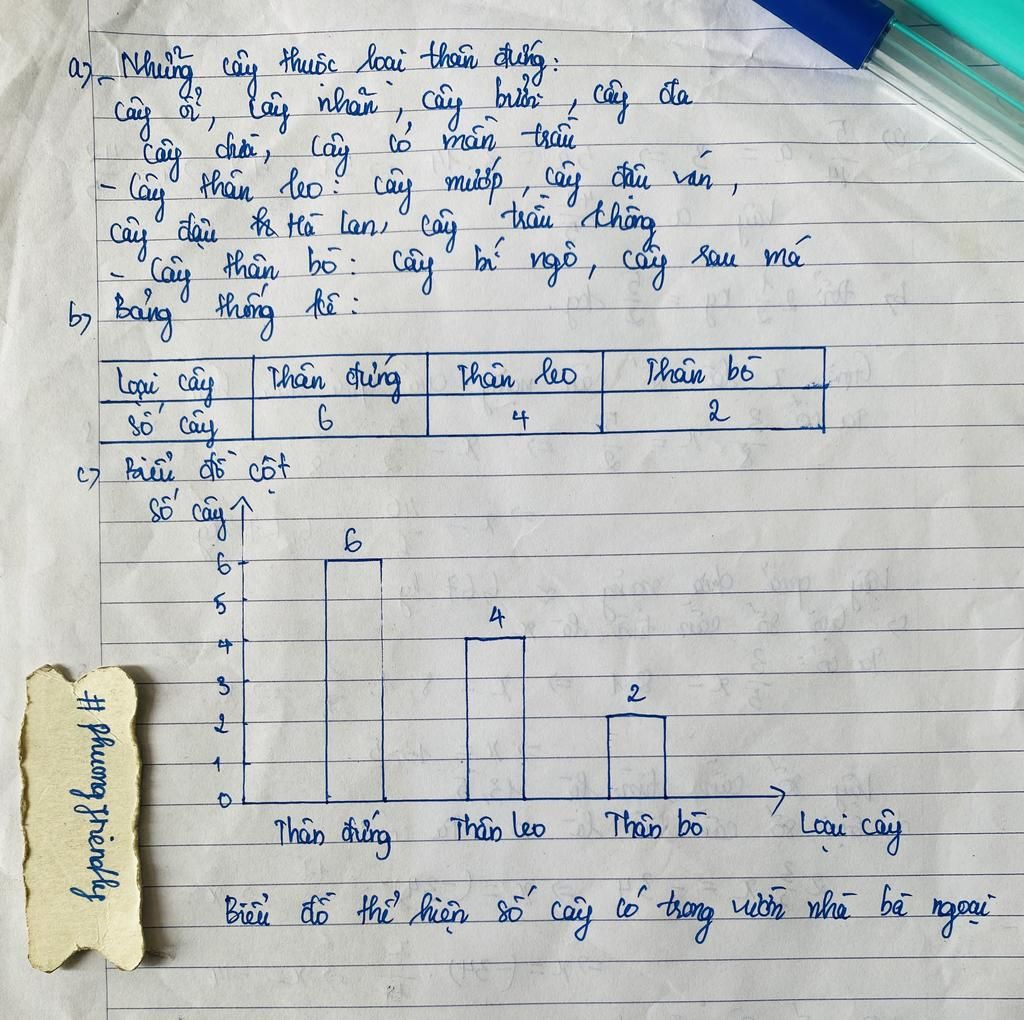 a) - Những cây thuộc loại thân đứng:
Cây ổi, cây nhãn, cây bưởi, cây đa
cây dừa, cây cỏ mần trầu
- Cây thân leo: cây mướp, cây đậu ván,
cây đậu Hà Lan, cây trầu không
- Cây thân bò: cây bí ngô, cây rau má
b) Bảng thống kê:
Loại cây Thân đứng Thân leo Thân bò
Số cây 6 4 2
c) Biểu đồ cột
Số cây
6
6
5
4
4
3
2
2
1
0
Thân đứng Thân leo Thân bò Loại cây
Biểu đồ thể hiện số cây có trong vườn nhà bà ngoại